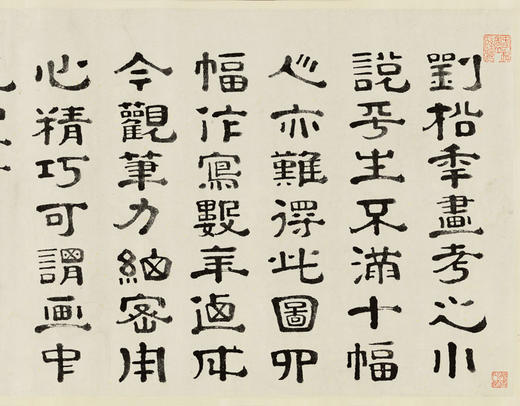 劉松年畫考之小
說平生不滿十幅
亦難得此圖四
幅作寫數年迺成
今觀筆力細密用
心精巧可謂画中